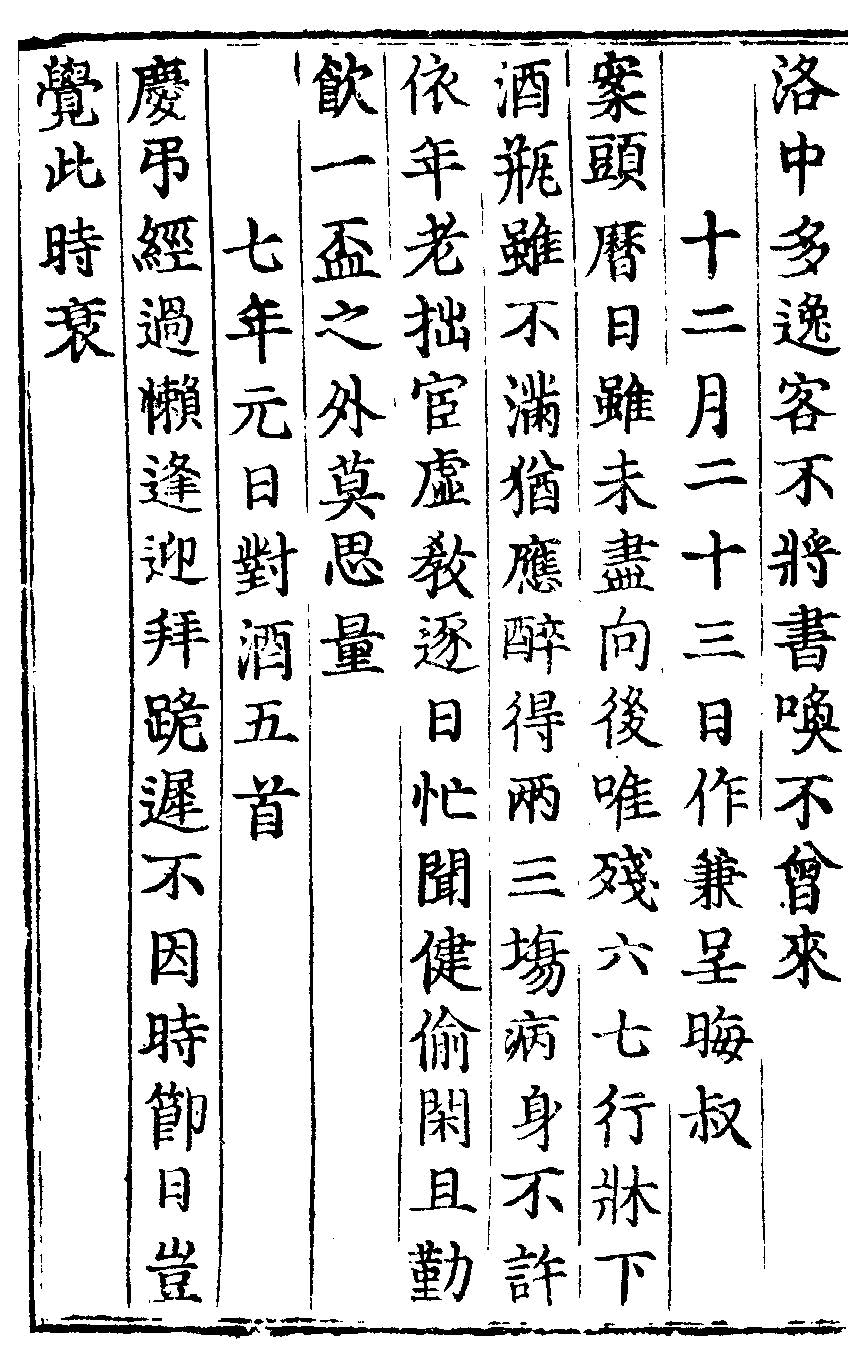 洛中多逸客不將書喚不曾來
十二月二十三日作兼呈晦叔
案頭曆日雖未盡向後唯殘六七行牀下
酒瓶雖不滿猶應醉得兩三塲病身不許
依年老拙宦虛教逐日忙聞健偷閑且勤
飲一盃之外莫思量
七年元日對酒五首
慶弔經過懶逢迎拜跪遲不因時節日豈
覺此時衰